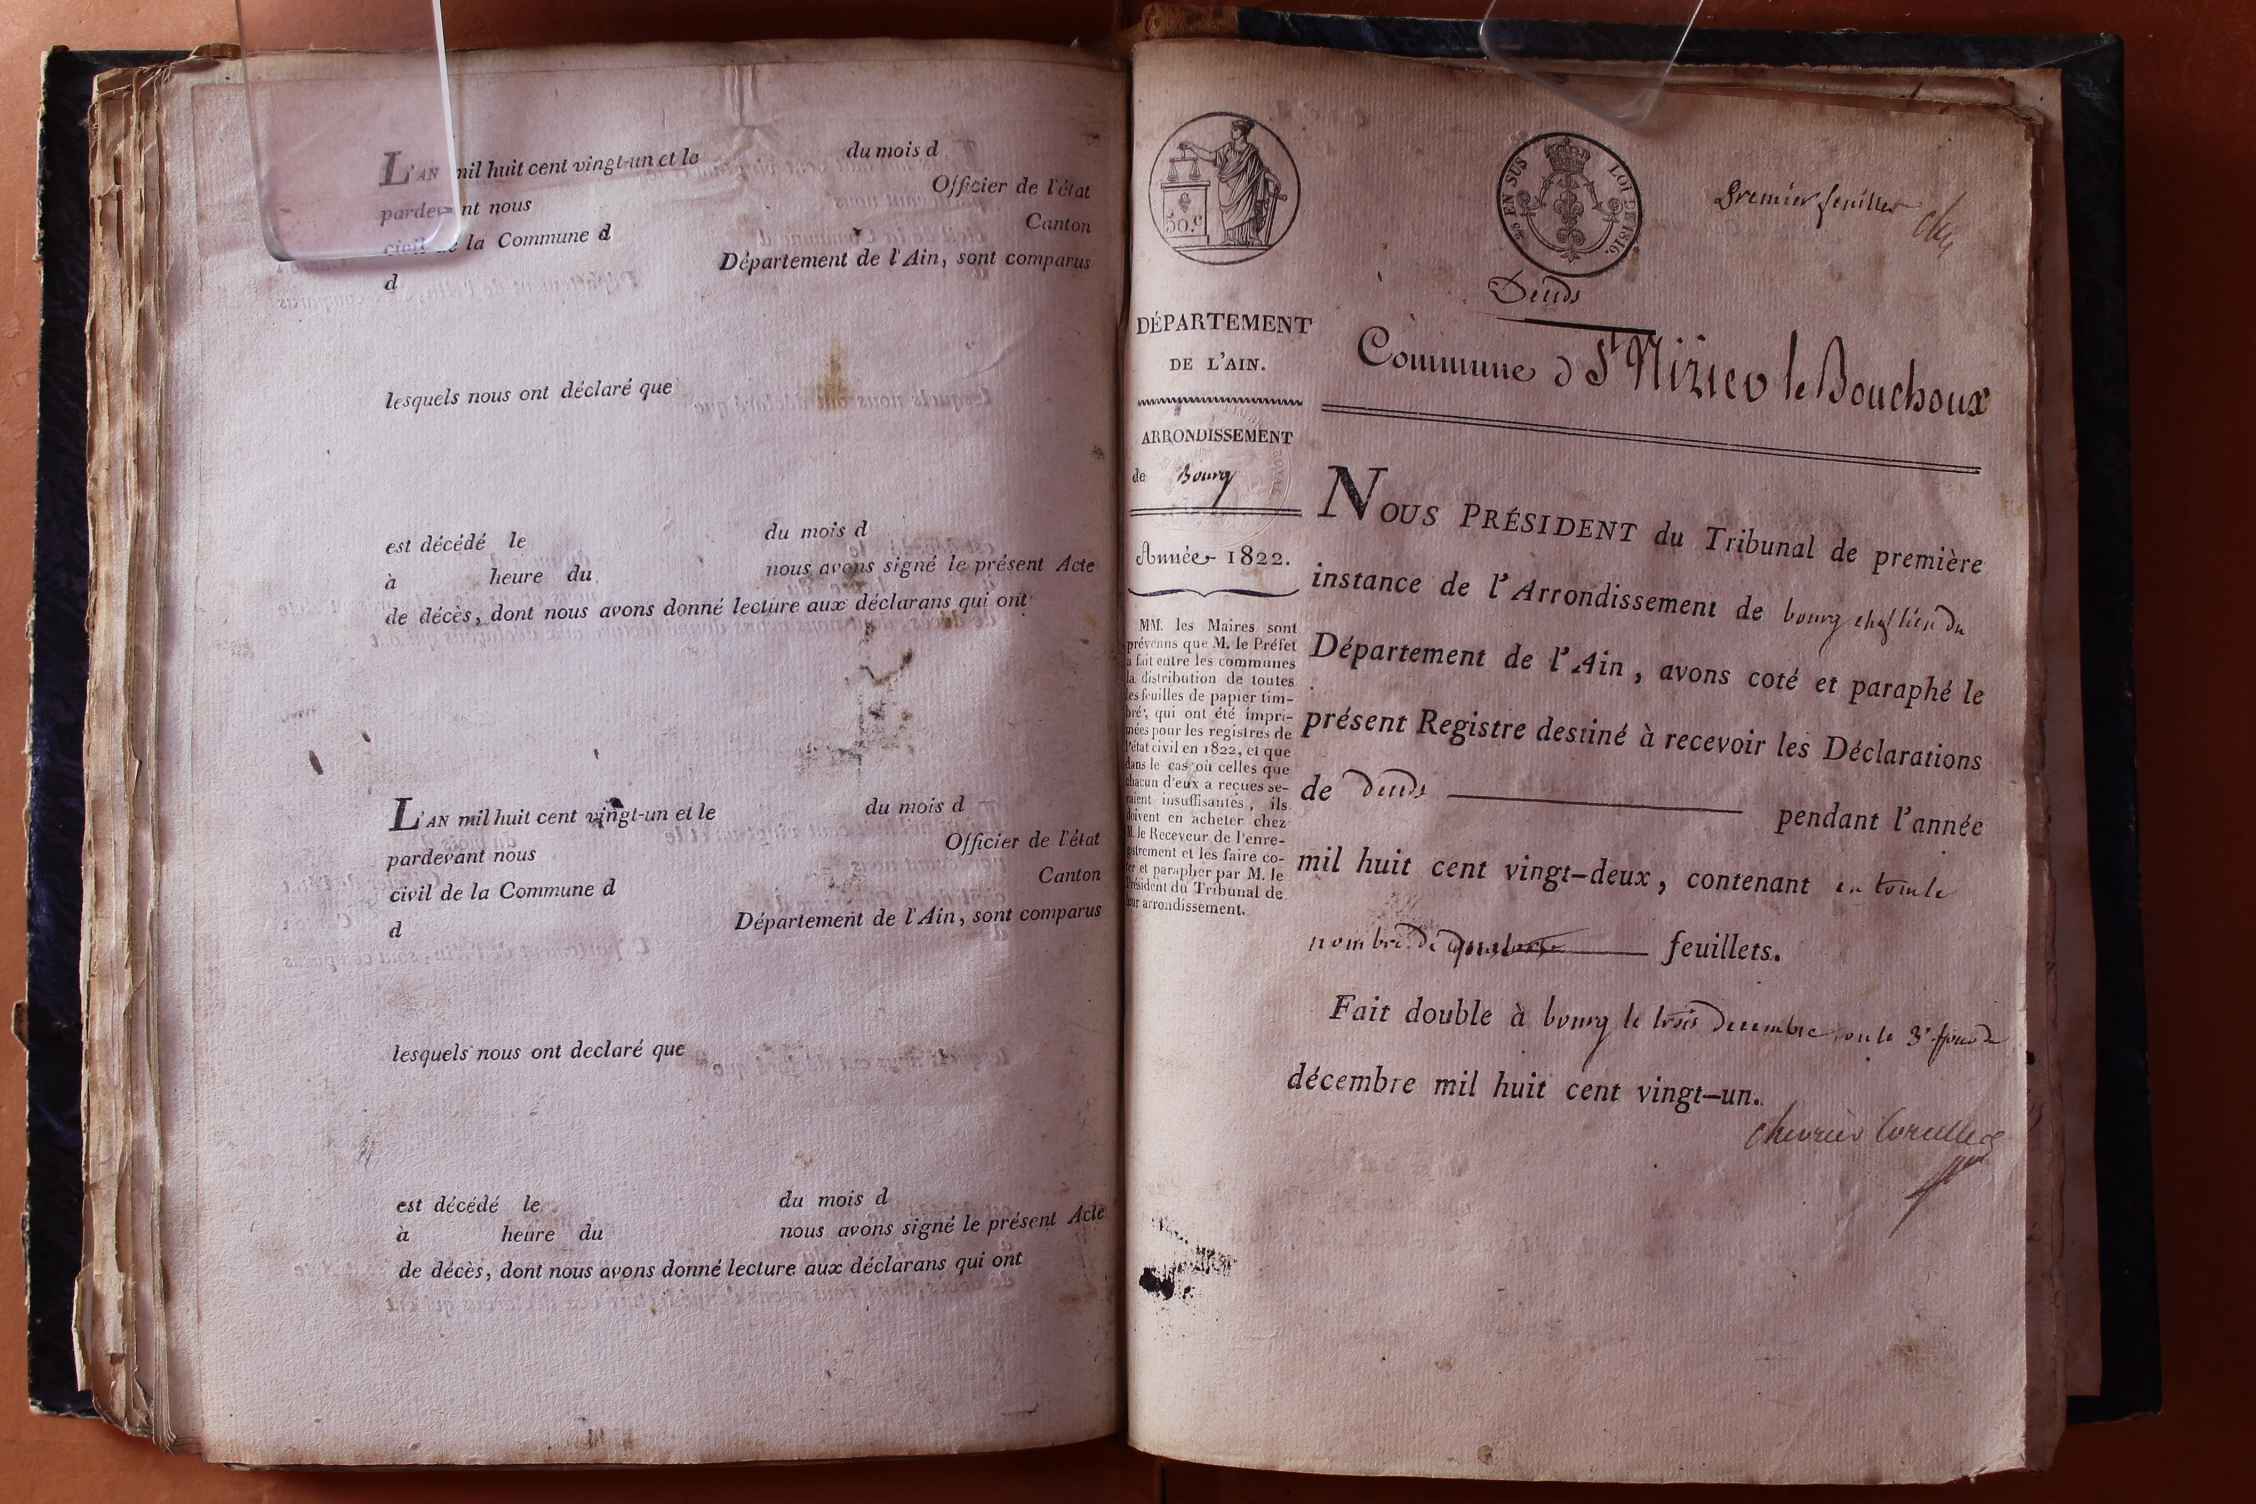 L'AN mil huit cent vingt-un et le du mois d
pardevant nous Officier de l'état
civil de la Commune d Canton
d Département de l'Ain, sont comparus
lesquels nous ont déclaré que
est décédé le du mois d
à heure du nous avons signé le présent Acte
de décès, dont nous avons donné lecture aux déclarans qui ont
L'AN mil huit cent vingt-un et le du mois d
pardevant nous Officier de l'état
civil de la Commune d Canton
d Département de l'Ain, sont comparus
lesquels nous ont declaré que
est décédé le du mois d
à heure du nous avons signé le présent Acte
de décès, dont nous avons donné lecture aux déclarans qui ont
50.c
EN SUS LOI DE 1816.
Premier feuillet
Décès
DÉPARTEMENT
DE L'AIN.
ARRONDISSEMENT
de Bourg
Année 1822.
MM. les Maires sont
prévenus que M. le Préfet
a fait entre les communes
la distribution de toutes
les feuilles de papier tim-
bré, qui ont été impri-
mées pour les registres de
l'état civil en 1822, et que
dans le cas où celles que
chacun d'eux a reçues se-
raient insuffisantes, ils
doivent en acheter chez
M. le Receveur de l'enre-
gistrement et les faire co-
ter et parapher par M. le
Président du Tribunal de
leur arrondissement.
Commune d St Nizier le Bouchoux
NOUS PRÉSIDENT du Tribunal de première
instance de l'Arrondissement de bourg chef lieu du
Département de l'Ain, avons coté et paraphé le
présent Registre destiné à recevoir les Déclarations
de Décès pendant l'année
mil huit cent vingt-deux, contenant
nombre de feuillets.
Fait double à bourg le trois decembre
décembre mil huit cent vingt-un.